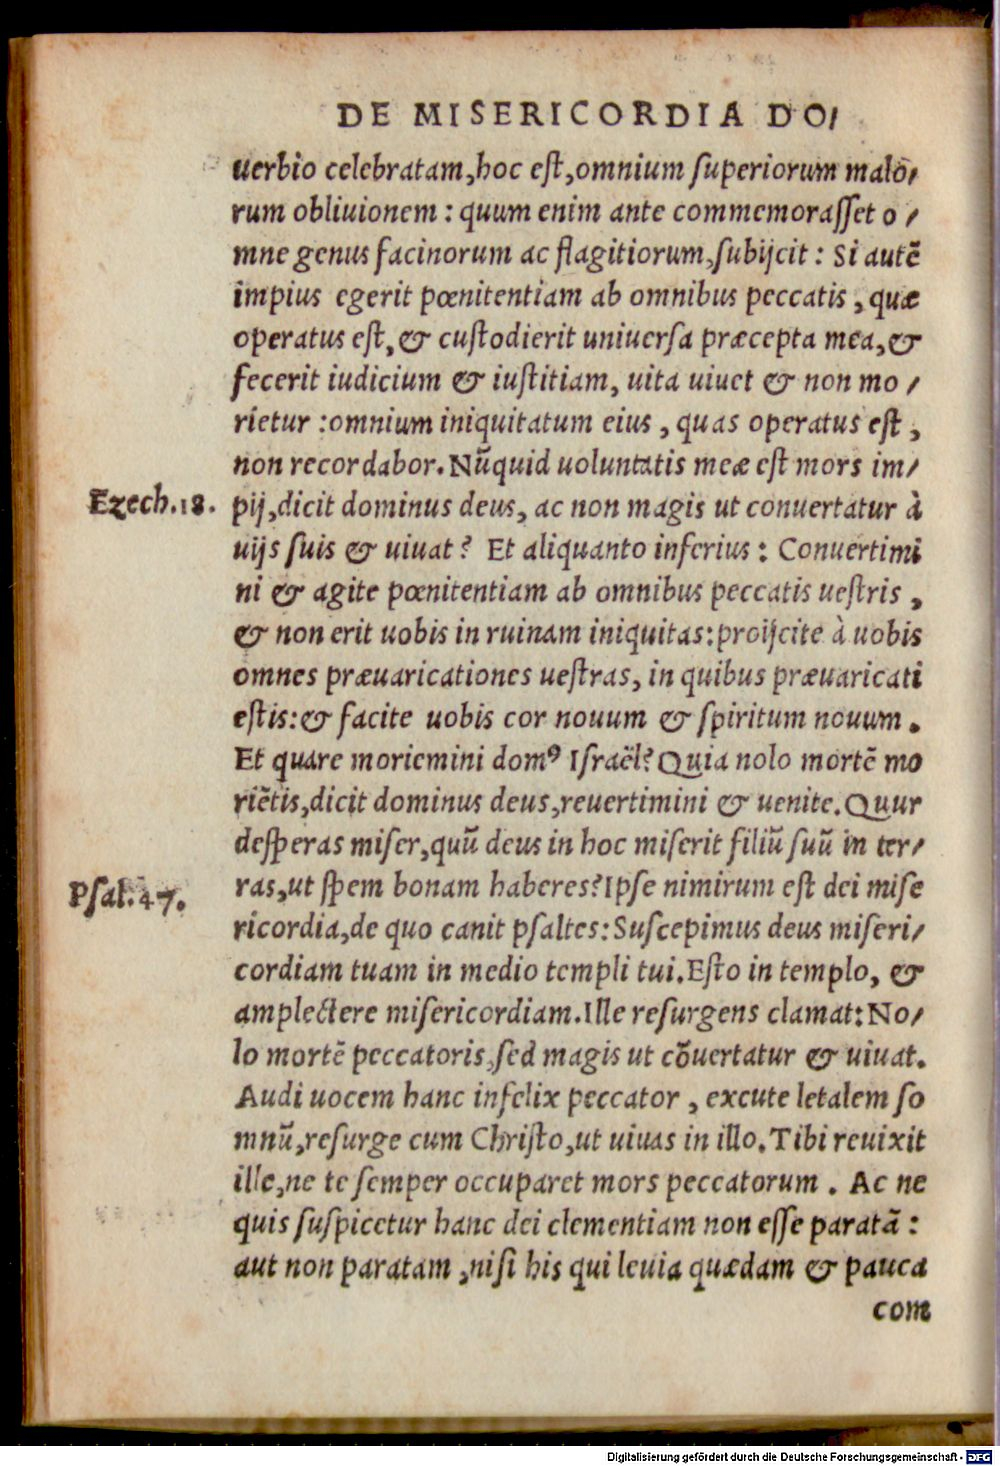 DE MISERICORDIA DO/
uerbio celebratam,hoc est,omnium superiorum malõ/
rum obliuionem : quum enim ante commemorasset o /
mne genus facinorum ac flagitiorum,subijcit : Si autẽ
impius egerit pœnitentiam ab omnibus peccatis , quæ
operatus est, & custodierit uniuersa præcepta mea, &
fecerit iudicium & iustitiam, uita uiuet & non mo /
rietur :omnium iniquitatum eius , quas operatus est ,
non recordabor. Nũquid uoluntatis meæ est mors im/
Ezech.18. pij,dicit dominus deus, ac non magis ut conuertatur à
uijs suis & uiuat ? Et aliquanto inferius : Conuertimi
ni & agite pœnitentiam ab omnibus peccatis uestris ,
& non erit uobis in ruinam iniquitas:proijcite à uobis
omnes præuaricationes uestras, in quibus præuaricati
estis:& facite uobis cor nouum & spiritum nouum .
Et quare moriemini domꝰ Israël? Quia nolo mortẽ mo
riẽtis,dicit dominus deus,reuertimini & uenite. Quur
desperas miser,quũ deus in hoc miserit filiũ suũ in ter/
Psal.47. ras,ut spem bonam haberes?Ipse nimirum est dei mise
ricordia,de quo canit psaltes: Suscepimus deus miseri/
cordiam tuam in medio templi tui. Esto in templo, &
amplectere misericordiam. Ille resurgens clamat: No/
lo mortẽ peccatoris,sed magis ut cõuertatur & uiuat.
Audi uocem hanc infelix peccator , excute letalem so
mnũ,resurge cum Christo,ut uiuas in illo. Tibi reuixit
ille,ne te semper occuparet mors peccatorum . Ac ne
quis suspicetur hanc dei clementiam non esse paratã :
aut non paratam ,nisi his qui leuia quædam & pauca
com
Digitalisierung gefördert durch die Deutsche Forschungsgemeinschaft - DFG